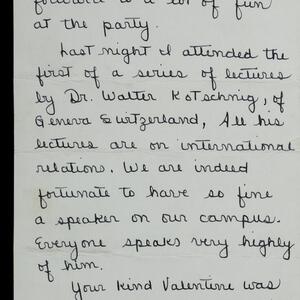 forward to a lot of fun
at the party.
Last night I attended the
first of a series of lectures
by Dr. Walter Kotschnig, of
Geneva Switzerland, All his
lectures are on international
relations. We are indeed
fortunate to have so fine
a speaker on our campus.
Everyone speaks very highly
of him.
Your kind Valentine was